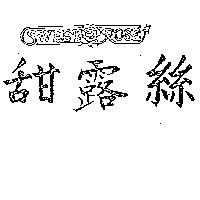 SWEET ROSE
甜露絲